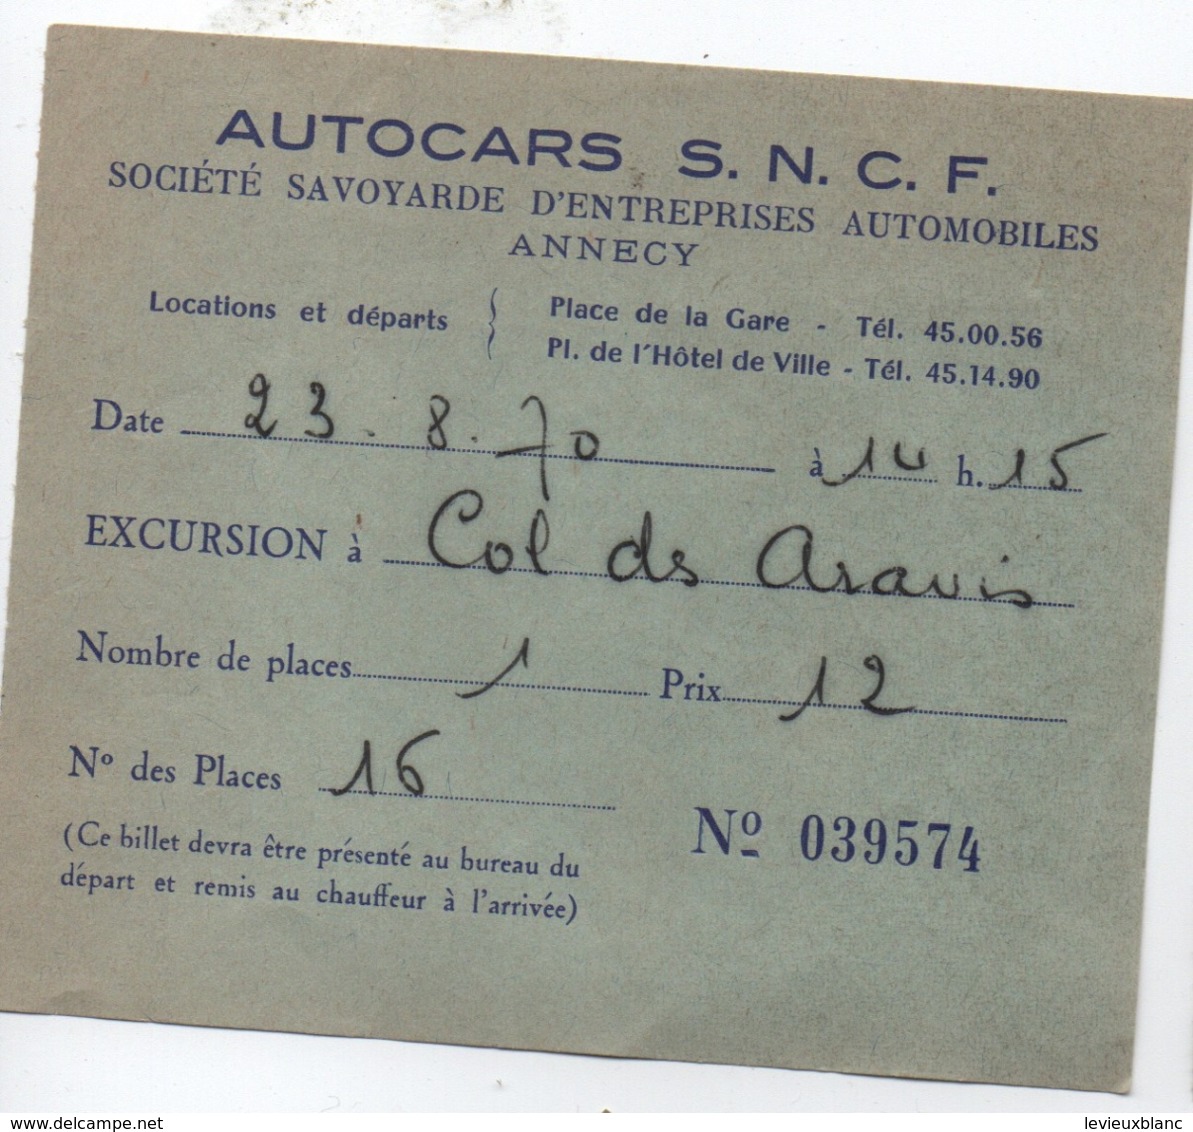 AUTOCARS S. N. C. F.
SOCIÉTÉ SAVOYARDE D'ENTREPRISES AUTOMOBILES
ANNECY
Locations et départs { Place de la Gare - Tél. 45.00.56
Pl. de l'Hôtel de Ville - Tél. 45.14.90
Date 23.8.70 à 14 h. 15
EXCURSION à Col ds Aravis
Nombre de places 1 Prix 12
Nº des Places 16
Nº 039574
(Ce billet devra être présenté au bureau du
départ et remis au chauffeur à l'arrivée)
levieuxblanc